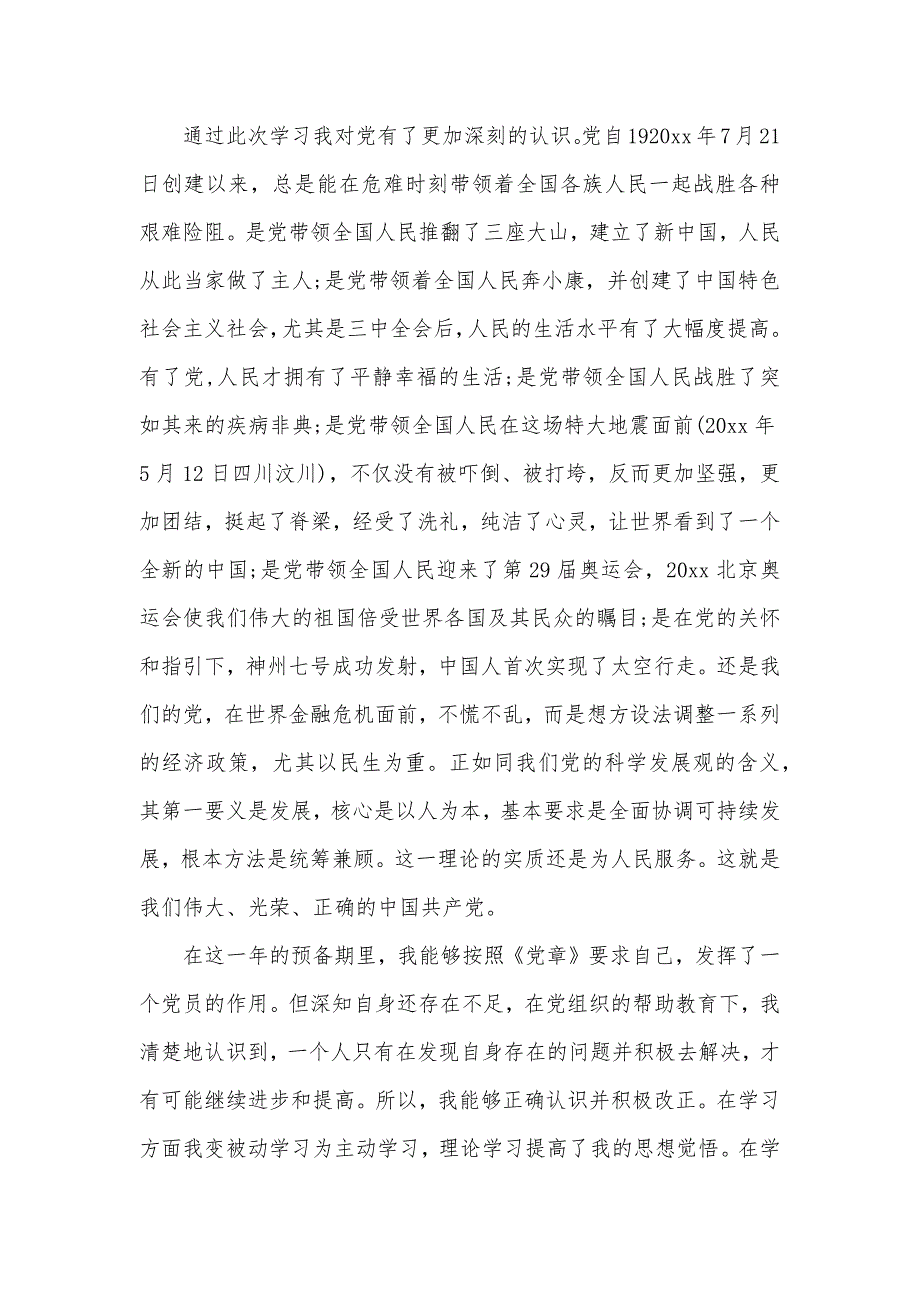 通过此次学习我对党有了更加深刻的认识。党自 1920xx 年 7 月 21
日创建以来，总是能在危难时刻带领着全国各族人民一起战胜各种
艰难险阻。是党带领全国人民推翻了三座大山，建立了新中国，人民
从此当家做了主人;是党带领着全国人民奔小康，并创建了中国特色
社会主义社会，尤其是三中全会后，人民的生活水平有了大幅度提高。
有了党,人民才拥有了平静幸福的生活;是党带领全国人民战胜了突
如其来的疾病非典;是党带领全国人民在这场特大地震面前(20xx 年
5 月 12 日四川汶川)，不仅没有被吓倒、被打垮，反而更加坚强，更
加团结，挺起了脊梁，经受了洗礼，纯洁了心灵，让世界看到了一个
全新的中国;是党带领全国人民迎来了第 29 届奥运会，20xx 北京奥
运会使我们伟大的祖国倍受世界各国及其民众的瞩目;是在党的关怀
和指引下，神州七号成功发射，中国人首次实现了太空行走。还是我
们的党，在世界金融危机面前，不慌不乱，而是想方设法调整一系列
的经济政策，尤其以民生为重。正如同我们党的科学发展观的含义，
其第一要义是发展，核心是以人为本，基本要求是全面协调可持续发
展，根本方法是统筹兼顾。这一理论的实质还是为人民服务。这就是
我们伟大、光荣、正确的中国共产党。
在这一年的预备期里，我能够按照《党章》要求自己，发挥了一
个党员的作用。但深知自身还存在不足，在党组织的帮助教育下，我
清楚地认识到，一个人只有在发现自身存在的问题并积极去解决，才
有可能继续进步和提高。所以，我能够正确认识并积极改正。在学习
方面我变被动学习为主动学习，理论学习提高了我的思想觉悟。在学